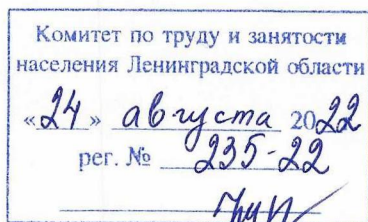 Комитет по труду и занятости
населения Ленинградской области
«24» августа 2022
рег. № 235-22